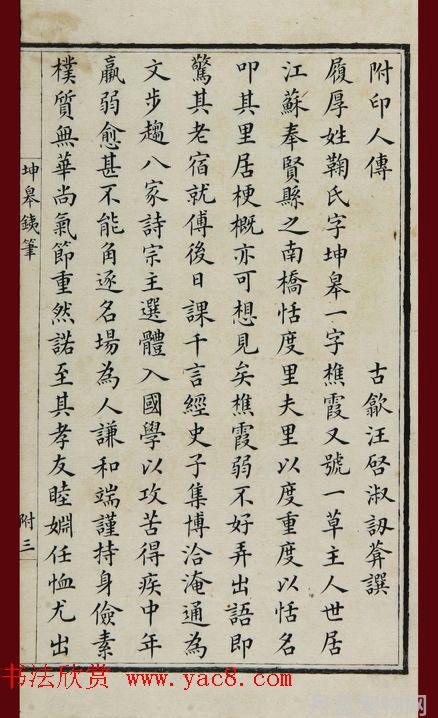 附印人傳
古歙汪啓淑訒葊譔
履厚姓鞠氏字坤皋一字樵霞又號一草主人世居
江蘇奉賢縣之南橋恬度里夫里以度重度以恬名
叩其里居梗概亦可想見矣樵霞弱不好弄出語即
驚其老宿就傅後日課千言經史子集博洽淹通為
文步趨八家詩宗主選體入國學以攻苦得疾中年
羸弱愈甚不能角逐名場為人謙和端謹持身儉素
樸質無華尚氣節重然諾至其孝友睦婣任恤尤出
坤皋銕筆
附三
书法欣赏 www.yac8.com